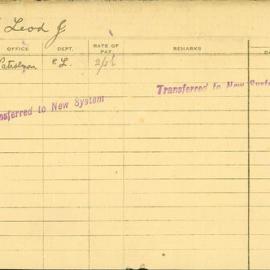 Leod J
OFFICE DEPT. RATE OF PAY. REMARKS
Patrolman
Transferred to New Syst
nsferred to New System